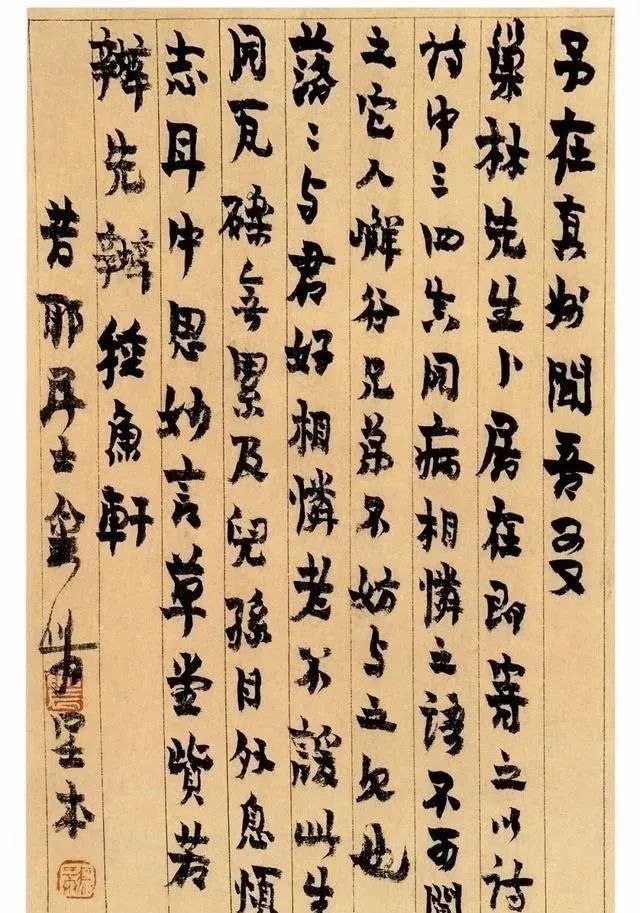 予在真州聞吾友
巢林先生卜居在即寄之以詩
詩中三四失同病相憐之語不可聞
之它人懈谷兄弟不妨与之見也
落〻与君好相憐老不諼此生
同瓦礫無累及兒孫目外息煩
志耳中思妙言草堂貲若
辦先辦種魚軒
若耶居士金吉金呈本